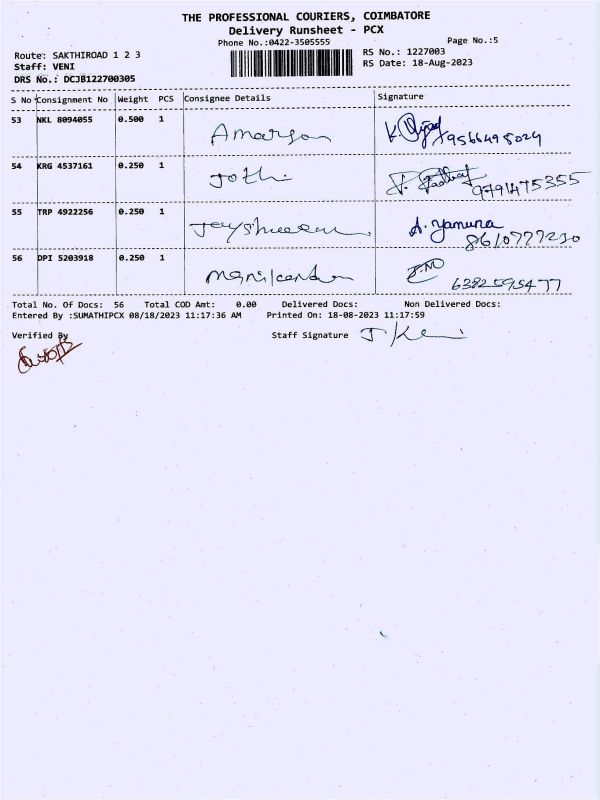 THE PROFESSIONAL COURIERS, COIMBATORE
Delivery Runsheet - PCX
Phone No.:0422-3505555
Page No.:5
Route: SAKTHIROAD 1 2 3
RS No.: 1227003
Staff: VENI
RS Date: 18-Aug-2023
DRS No.: DCJB122700305
S No Consignment No Weight PCS Consignee Details Signature
53 NKL 8094055 0.500 1 Amarson
54 KRG 4537161 0.250 1 Jothi 9791475355
55 TRP 4922256 0.250 1 A. Yamuna
8610777230
56 DPI 5203918 0.250 1 Manikandan J.M
6382595477
Total No. Of Docs: 56 Total COD Amt: 0.00 Delivered Docs: Non Delivered Docs:
Entered By :SUMATHIPCX 08/18/2023 11:17:36 AM Printed On: 18-08-2023 11:17:59
Verified By Staff Signature